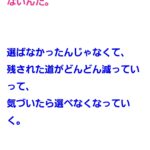 ないんだ。
選ばなかったんじゃなくて、
残された道がどんどん減ってい
って、
気づいたら選べなくなってい
く。